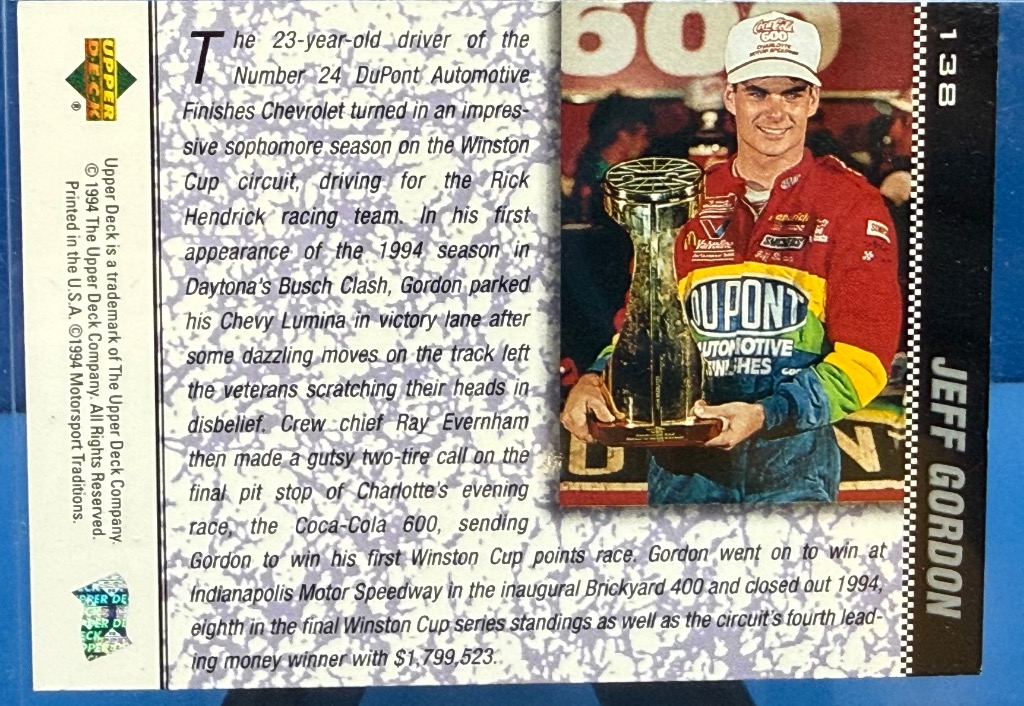 138
JEFF GORDON
The 23-year-old driver of the
Number 24 DuPont Automotive
Finishes Chevrolet turned in an impres-
sive sophomore season on the Winston
Cup circuit, driving for the Rick
Hendrick racing team. In his first
appearance of the 1994 season in
Daytona's Busch Clash, Gordon parked
his Chevy Lumina in victory lane after
some dazzling moves on the track left
the veterans scratching their heads in
disbelief. Crew chief Ray Evernham
then made a gutsy two-tire call on the
final pit stop of Charlotte's evening
race, the Coca-Cola 600, sending
Gordon to win his first Winston Cup points race. Gordon went on to win at
Indianapolis Motor Speedway in the inaugural Brickyard 400 and closed out 1994,
eighth in the final Winston Cup series standings as well as the circuit's fourth lead-
ing money winner with $1,799,523.
600
Coca-Cola
600
CHARLOTTE
MOTOR SPEEDWAY
Valvoline
DUPONT
AUTOMOTIVE
UPPER
DECK
®
Upper Deck is a trademark of The Upper Deck Company.
© 1994 The Upper Deck Company. All Rights Reserved.
Printed in the U.S.A. ©1994 Motorsport Traditions.